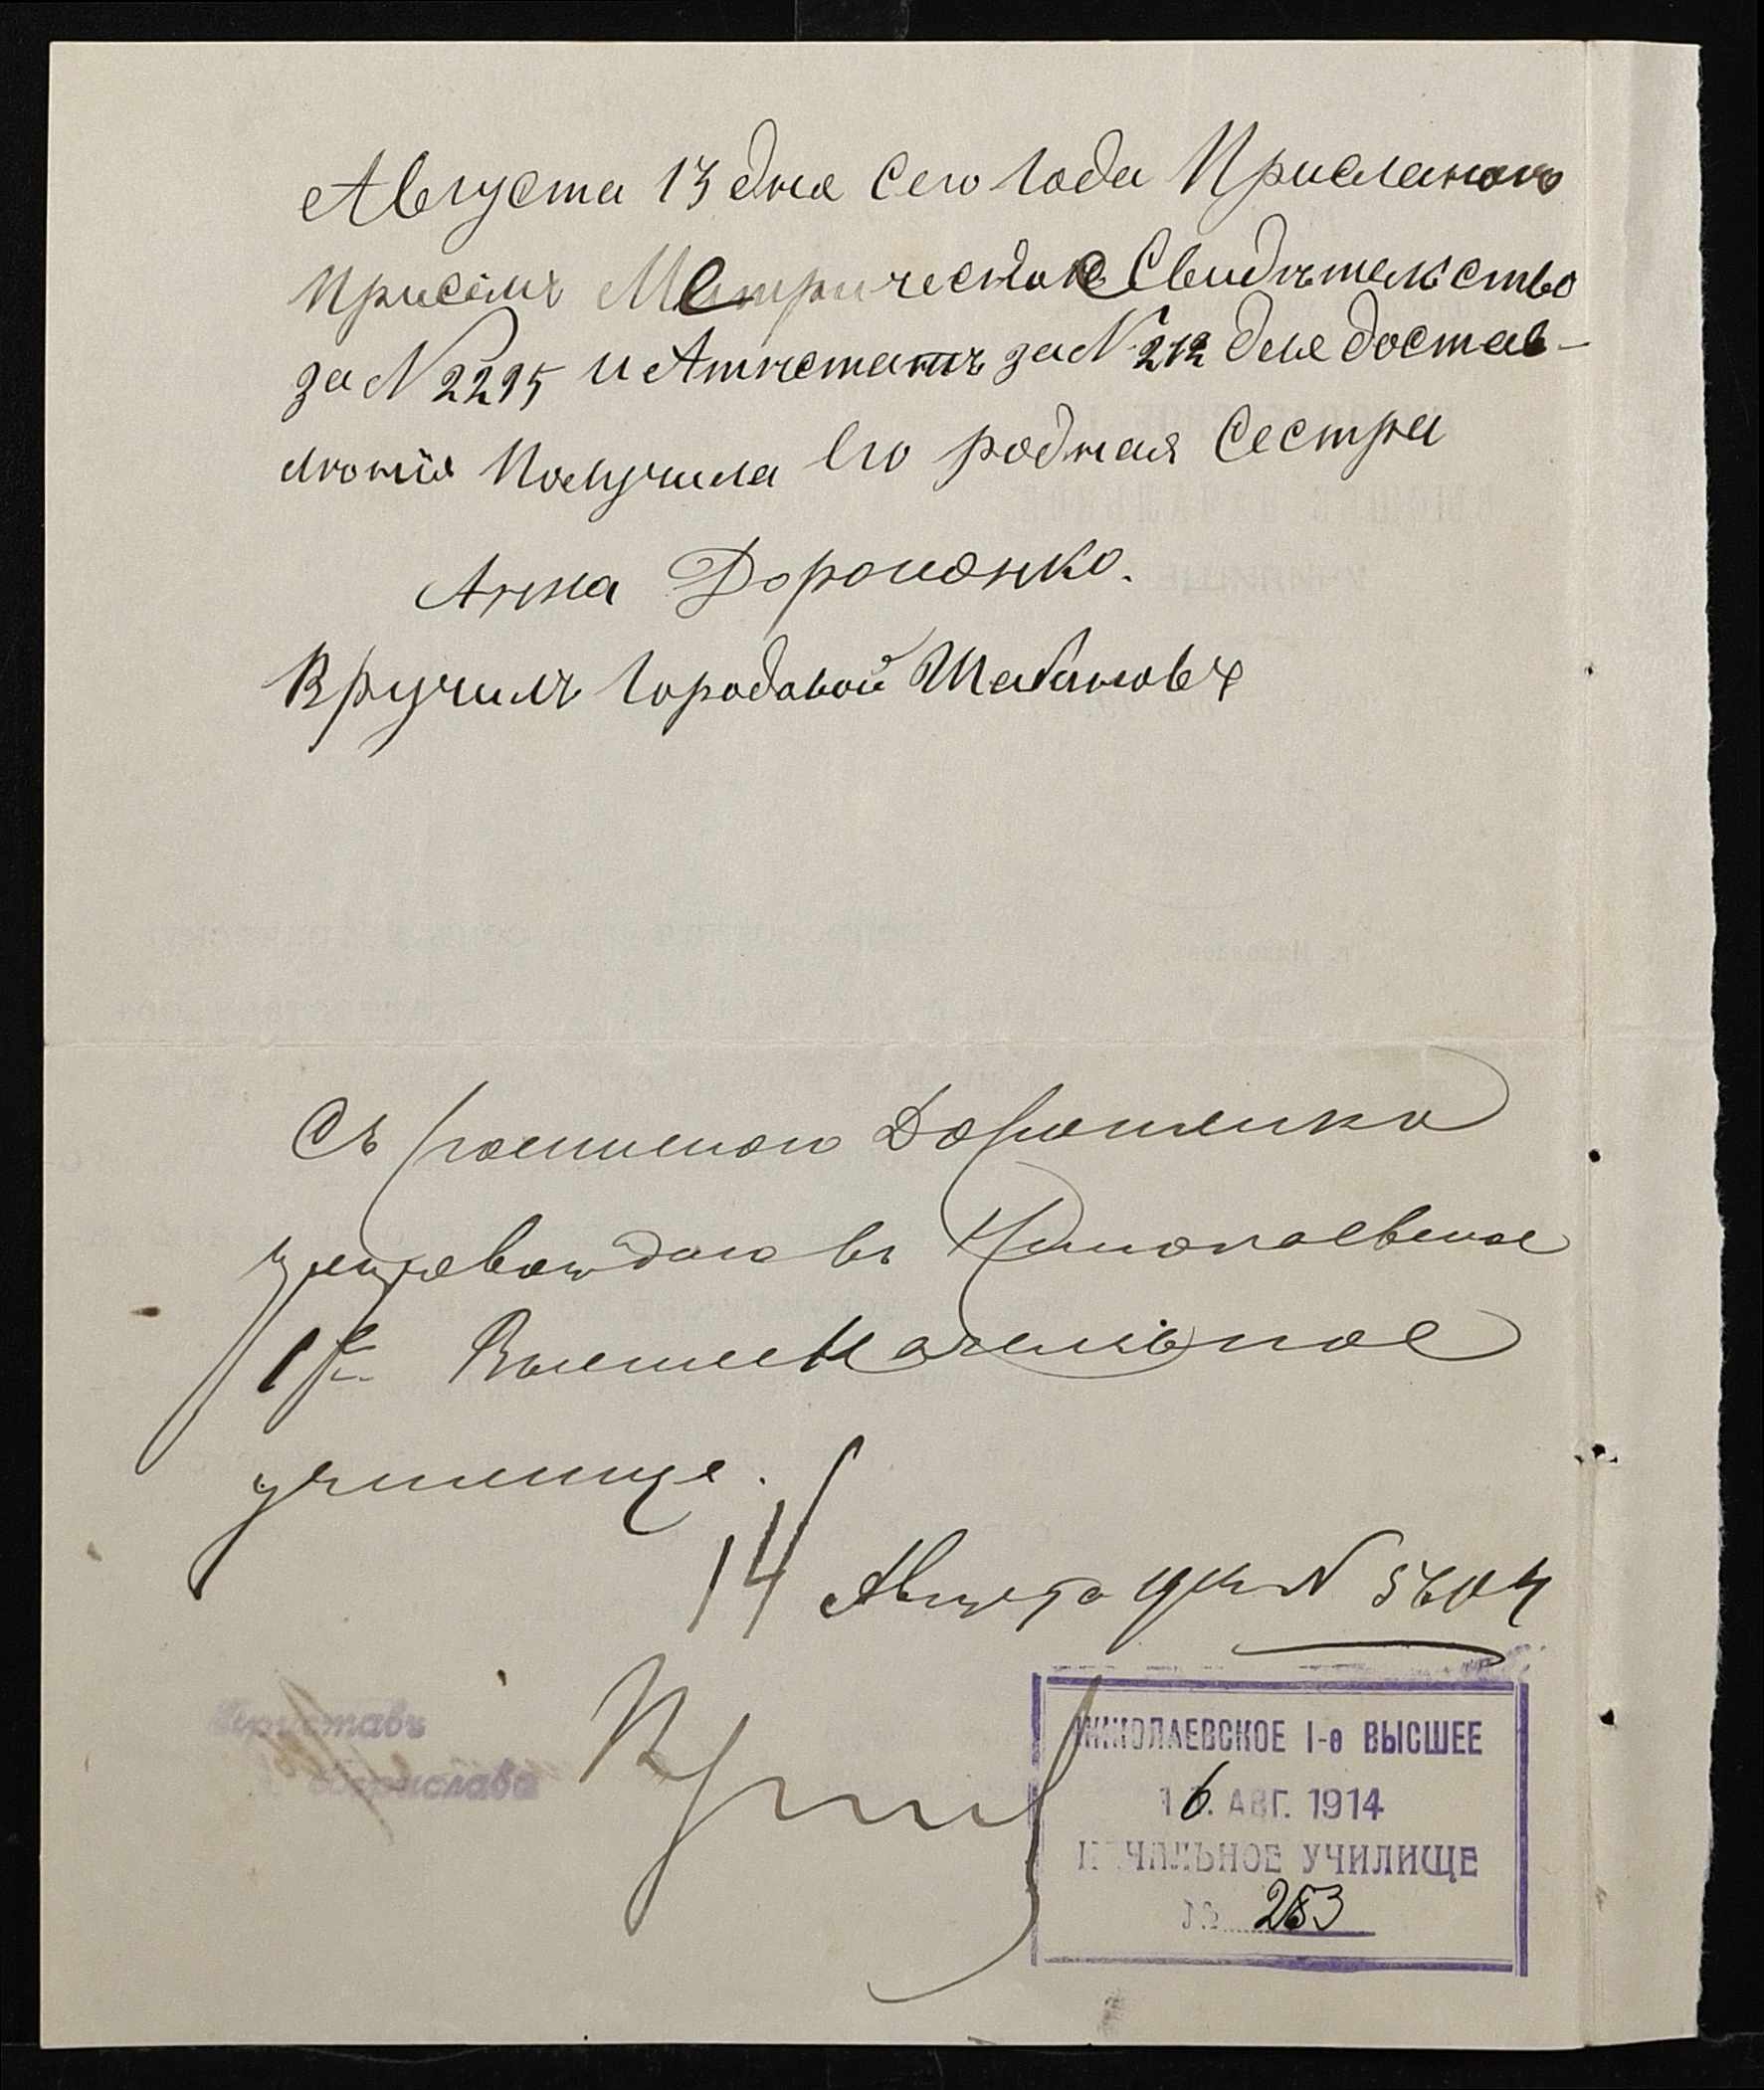 Августа 13 дня сего года Присланое
присемъ Метрическое Свидѣтельство
за N 2295 и Атестатъ за N 212 для достав-
люнія Получила Его родная Сестра
Анна Дорошэнко.
Вручилъ Городовой Шабановъ
Съ роспискою Дорошенко
препровождаю въ Николаевское
1е Высшее Начальное
училище.
14 Августа 914 N 5604
Приставъ
г. Борислава
НИКОЛАЕВСКОЕ I-е ВЫСШЕЕ
16. АВГ. 1914
НАЧАЛЬНОЕ УЧИЛИЩЕ
№ 253